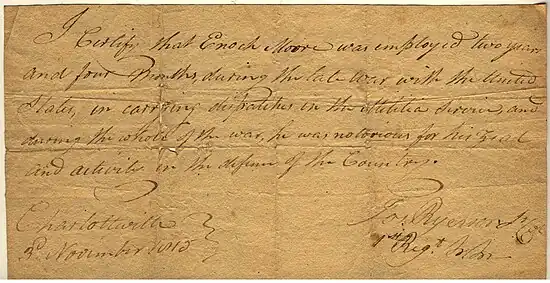 I Certify that Enoch Moore was employed two years
and four Months, during the late war with the United
States, in carrying dispatches in the Militia Service, and
during the whole of the war, he was notorious for his zeal
and activity in the defence of the Country.
Charlotteville
November 1815
Jos Ryerson Lt Col
1st Regt